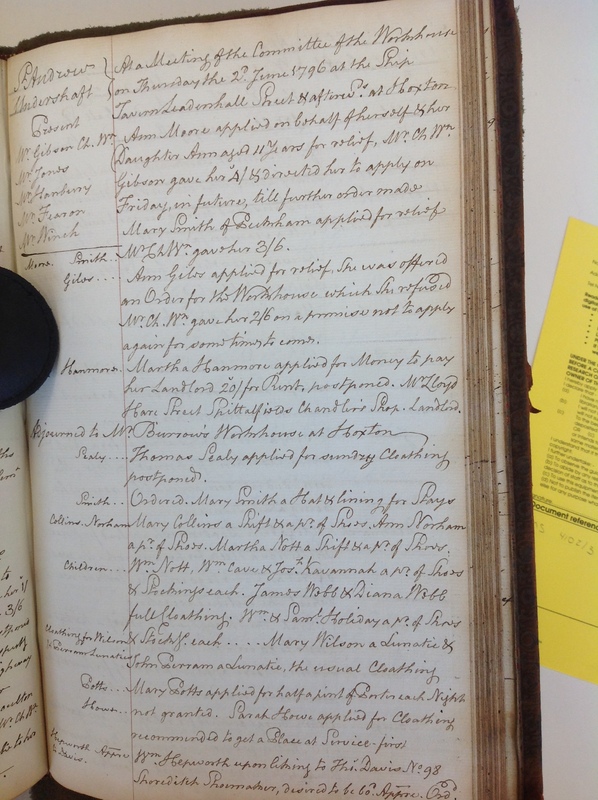 St. Andrew
Undershaft
Present
Mr. Gibson Ch. Wn
Mr. Jones
Mr. Hanbury
Mr. Fearon
Mr. Winch
At a Meeting of the Committee of the Workhouse
on Thursday the 2d. June 1796 at the Ship
Tavern Leadenhall Street & afterwds. at Hoxton
Ann Moore applied on behalf of herself & her
Daughter Ann aged 11 Years for relief, Mr. Ch Wn
Gibson gave her 4/ & directed her to apply on
Friday, in future, till further order made
Mary Smith of Peckham applied for relief
Moore. Smith. Mr. Ch Wn. gave her 3/6.
Giles... Ann Giles applied for relief. She was offered
an Order for the Workhouse which She refused
Mr. Ch. Wn gave her 2/6 on a promise not to apply
again for some time to come.
Hanmore. Martha Hanmore applied for Money to pay
her Landlord 20/ for Rent, postponed. Mr. Lloyd
Hare Street Spittalfields Chandlers Shop. Landlord.
Adjourned to Mr. Burrows Workhouse at Hoxton
Sealy... Thomas Sealy applied for sundry Cloathing
postponed.
Smith... Ordered. Mary Smith a Hat & lining for Stays
Collins. Norham Mary Collins a Shift & a pr. of Shoes. Ann Norham
a pr. of Shoes. Martha Nott a Shift & a pr. of Shoes.
Children... Wm Nott, Wm. Cave & Josh. Kavannah a pr. of Shoes
& Stockings each. James Webb & Diana Webb
full Cloathing. Wm. & Saml. Holiday a pr. of Shoes
Cloathing for Wilson & Stockgs. each .... Mary Wilson a Lunatic &
& Perram Lunatics John Perram a Lunatic, the usual Cloathing
Potts... Mary Potts applied for half a pint of Porter each Night
Howe... not granted. Sarah Howe applied for Cloathing
recommended to get a Place at Service first
Hepworth Appre Wm. Hepworth upon liking to Thos. Davis No. 98
to Davis. Shoreditch Shoemaker, desired to be bo. Appre. Ordd